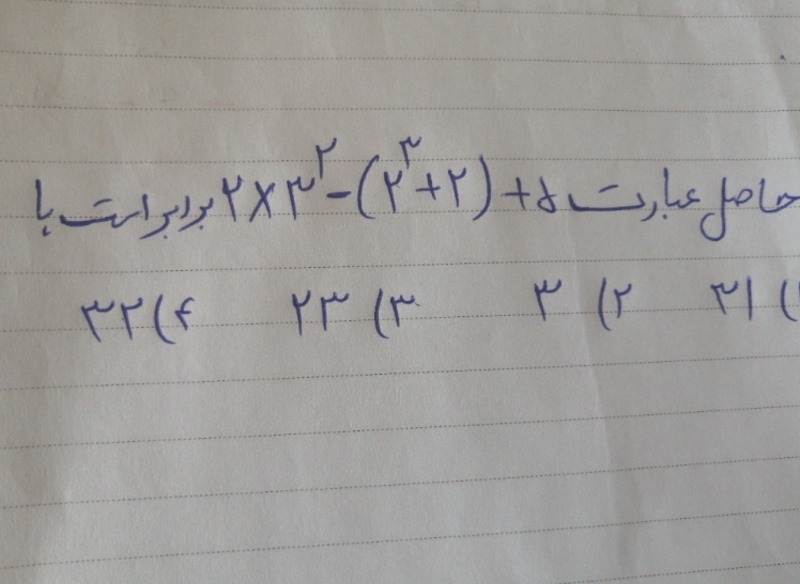 حاصل عبارت ۲×۳^۲-(۲^۳+۲)+۵ برابر است با
۳۱ (۱ ۳ (۲ ۲۳ (۳ ۳۲ (۴